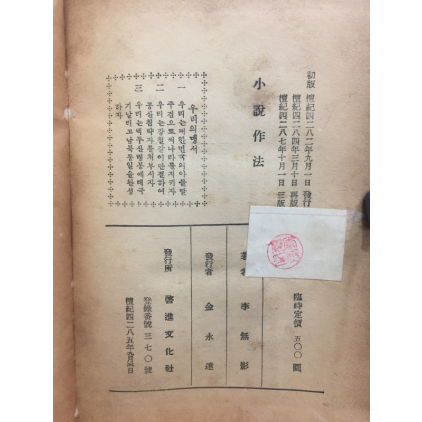 初版 檀紀四二八二年九月一日 發行
檀紀四二八四年三月十日 再版
檀紀四二八七年十月一日 三版
小說作法
우리의 맹서
一 우리는 대한민국의 아들딸
주검으로써 나라를 지키자
二 우리는 강철같이 단결하여
공산침략자를 쳐부시자
三 우리는 백두산 영봉에 태극
기 날리고 남북통일을 완성
하자
臨時定價 五〇〇圜
著者 李無影
發行者 金永
發行所 啓進文化社
登錄番號 三七〇號
檀紀四二八五年 月 日